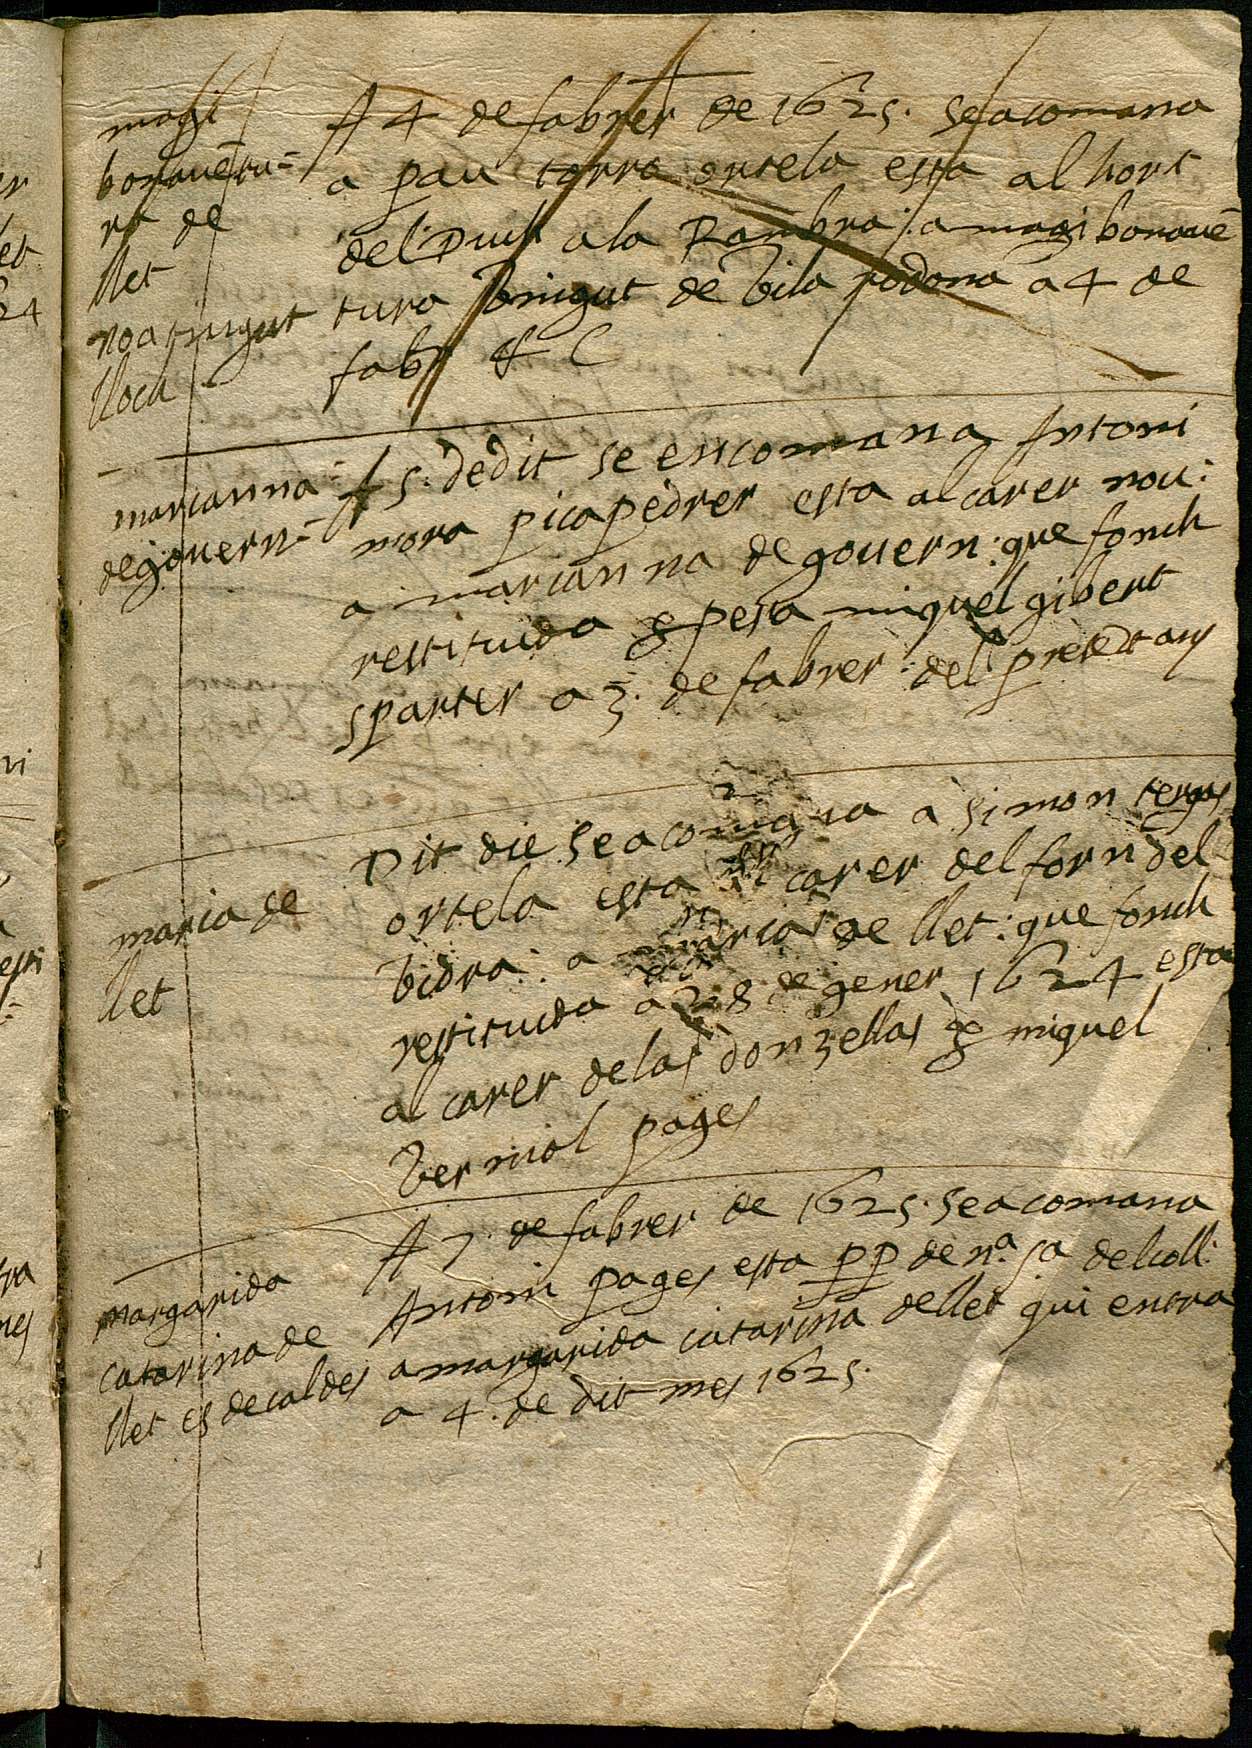 magi
bonauētu=
ra de
llet
no a tingut
lloch
A 4 de fabrer de 1625. se acomana
a pau torra ortela esta al hort
del Duch a la Rambra: a magi bonauē
tura vingut de vila rodona a 4 de
fabr &C
marianna=
de gouern=
A 5. de dit se encomana Antoni
mora picapedrer esta al carer nou:
a marianna de gouern: que fonch
restituida & pesa miquel gibert
sparter a 3. de fabrer: del preset any
maria de
llet
Dit die se acomana a simon
ortela esta al carer del forn del
vidra: a maria de llet: que fonch
restituida a 28 de gener 1624 esta
al carer de las donzellas & miquel
vermol pages
margarida
catarina de
llet es de caldes
A 7. de fabrer de 1625. se acomana
Antoni pages esta pp de nª. sª del coll:
a margarida catarina de llet qui entra
a 4. de dit mes 1625.